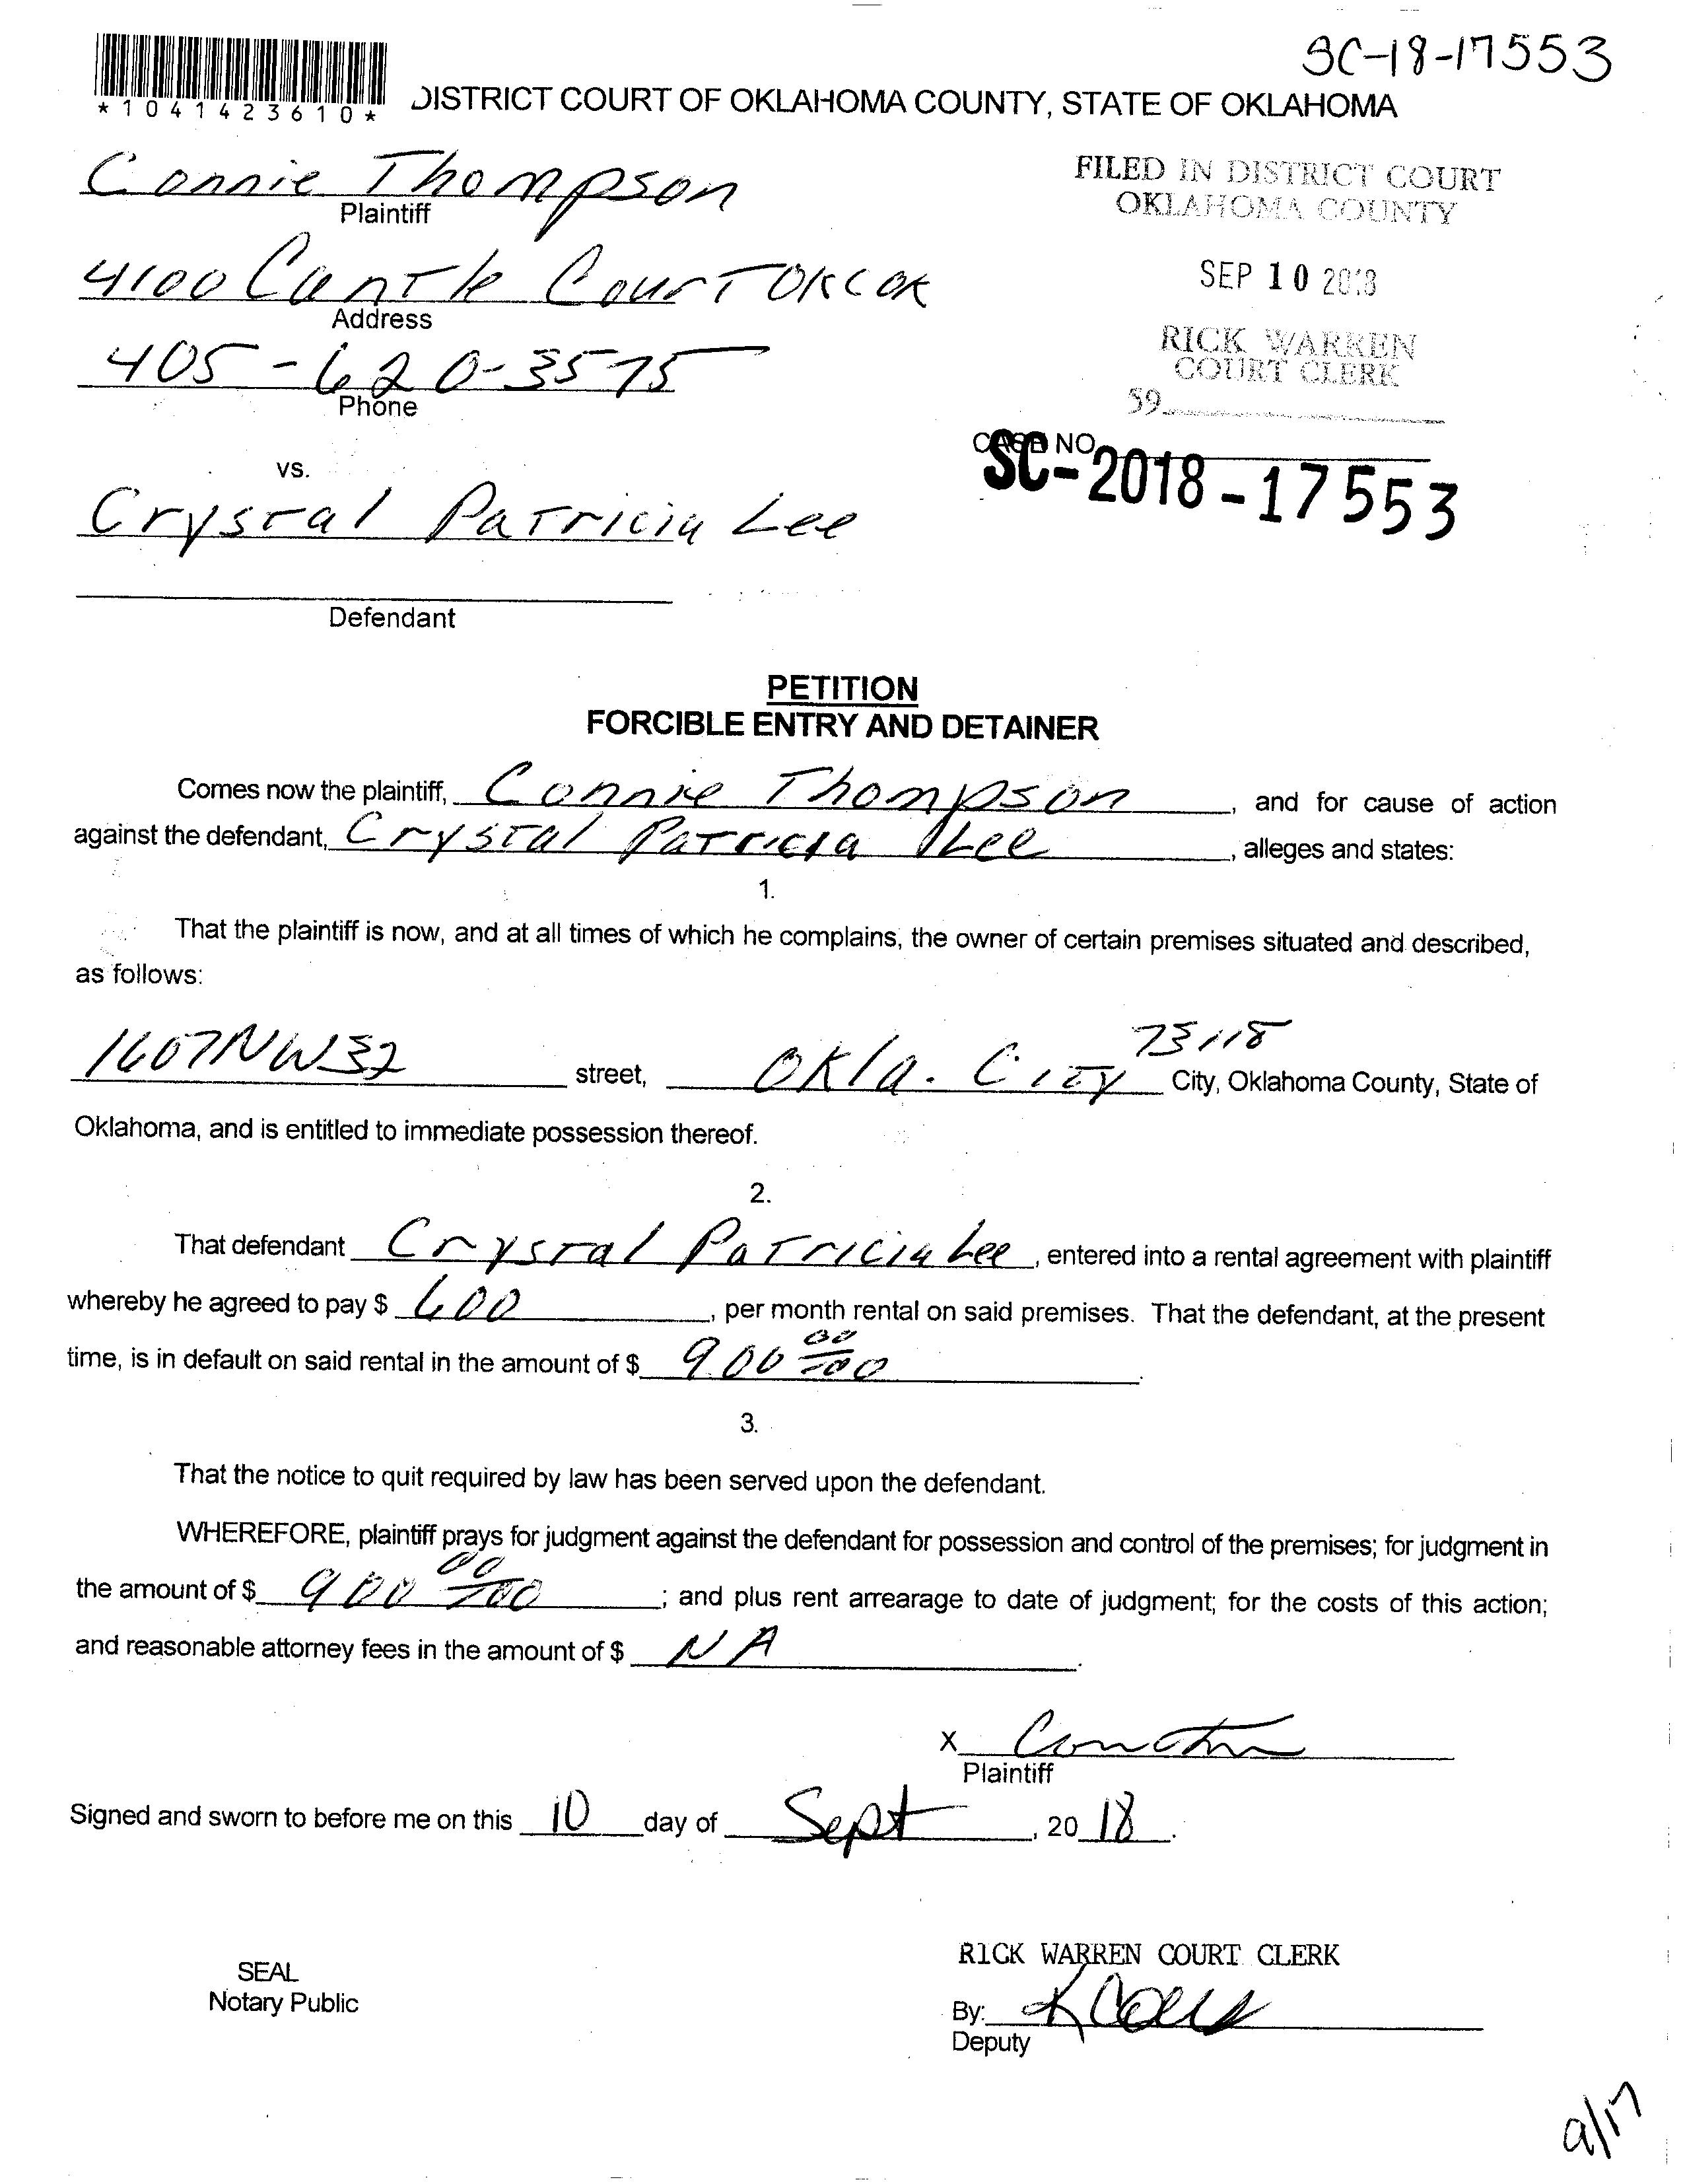 SC-18-17553
*1041423610*
DISTRICT COURT OF OKLAHOMA COUNTY, STATE OF OKLAHOMA
Connie Thompson
Plaintiff
FILED IN DISTRICT COURT
OKLAHOMA COUNTY
4100 Cantle Court OKC OK
Address
SEP 10 2018
405-620-3575
Phone
RICK WARREN
COURT CLERK
59
CASE NO.
SC-2018-17553
vs.
Crystal Patricia Lee
Defendant
PETITION
FORCIBLE ENTRY AND DETAINER
Comes now the plaintiff, Connie Thompson, and for cause of action
against the defendant, Crystal Patricia Lee, alleges and states:
1.
That the plaintiff is now, and at all times of which he complains, the owner of certain premises situated and described,
as follows:
1607 NW 32 street, Okla. City 73118 City, Oklahoma County, State of
Oklahoma, and is entitled to immediate possession thereof.
2.
That defendant Crystal Patricia Lee, entered into a rental agreement with plaintiff
whereby he agreed to pay $ 600, per month rental on said premises. That the defendant, at the present
time, is in default on said rental in the amount of $ 900 00/100.
3.
That the notice to quit required by law has been served upon the defendant.
WHEREFORE, plaintiff prays for judgment against the defendant for possession and control of the premises; for judgment in
the amount of $ 900 00/100; and plus rent arrearage to date of judgment; for the costs of this action;
and reasonable attorney fees in the amount of $ NA.
X
Plaintiff
Signed and sworn to before me on this 10 day of Sept, 20 18.
RICK WARREN COURT CLERK
SEAL
Notary Public
By:
Deputy
9/17